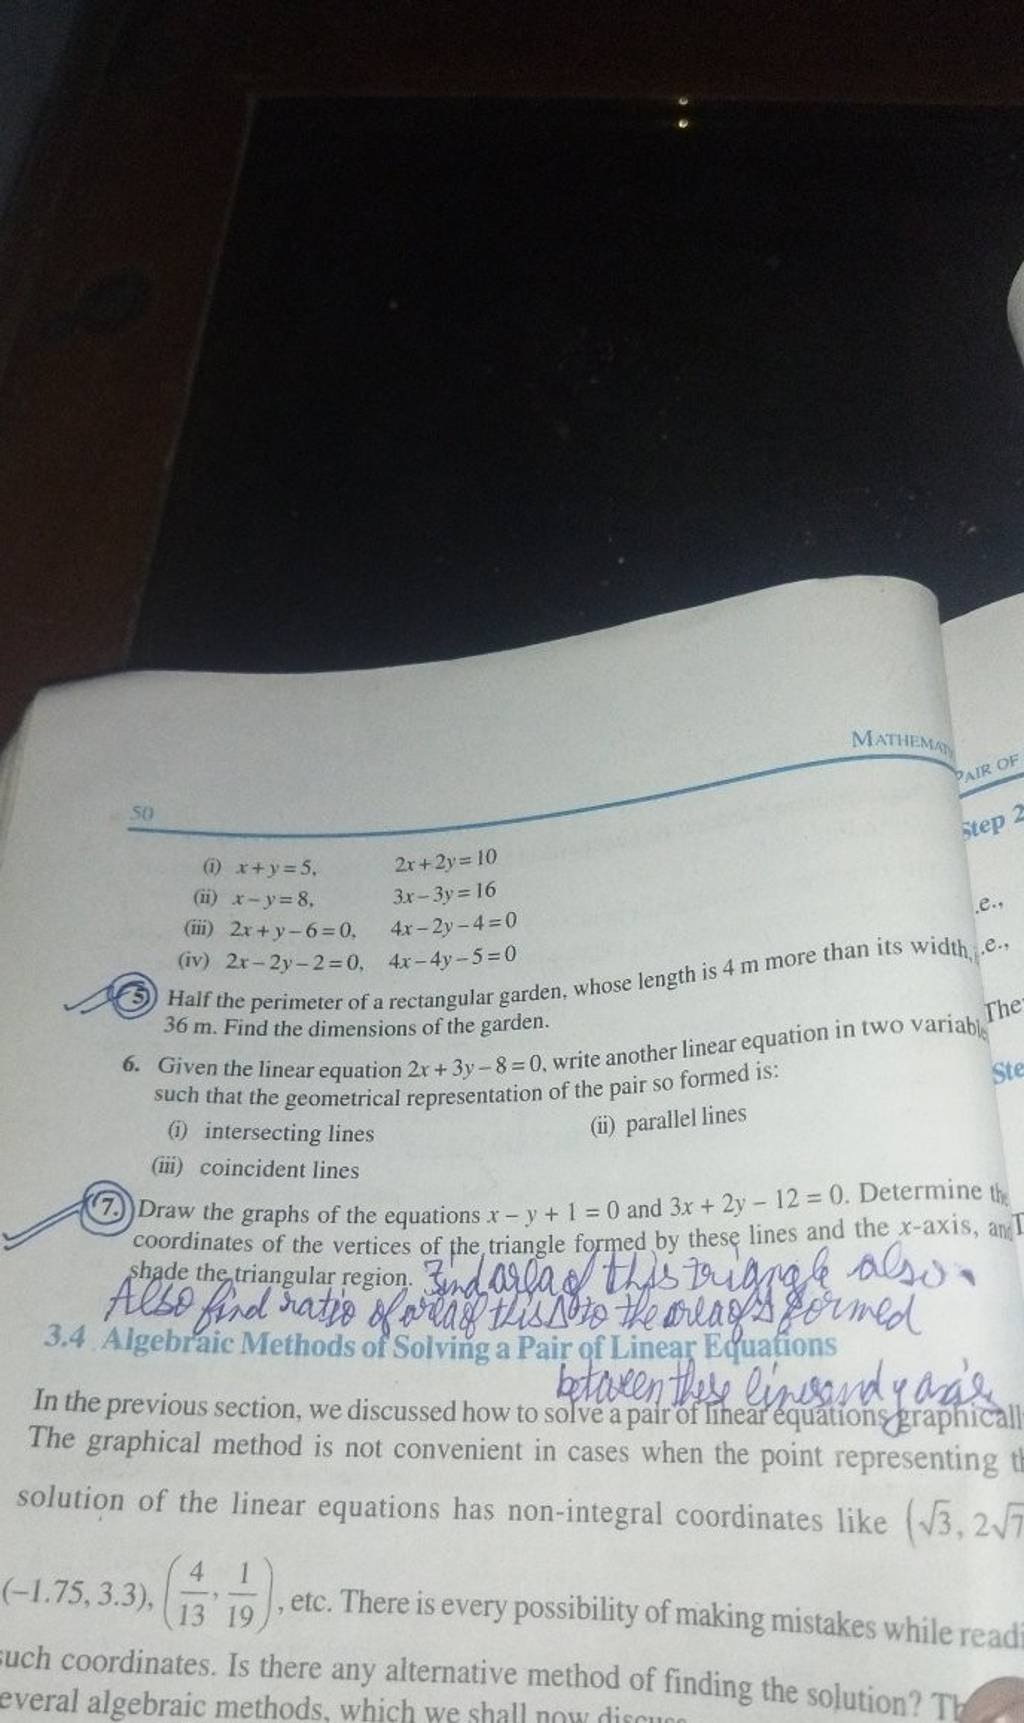 MATHEMAT
50
(i) x + y = 5, 2x + 2y = 10
(ii) x – y = 8, 3x – 3y = 16
(iii) 2x + y – 6 = 0, 4x – 2y – 4 = 0
(iv) 2x – 2y – 2 = 0, 4x – 4y – 5 = 0
5 Half the perimeter of a rectangular garden, whose length is 4 m more than its width,
36 m. Find the dimensions of the garden.
6. Given the linear equation 2x + 3y – 8 = 0, write another linear equation in two variabl
such that the geometrical representation of the pair so formed is:
(i) intersecting lines (ii) parallel lines
(iii) coincident lines
7. Draw the graphs of the equations x – y + 1 = 0 and 3x + 2y – 12 = 0. Determine the
coordinates of the vertices of the triangle formed by these lines and the x-axis, and
shade the triangular region. Find area of this triangle also.
Also find ratio of area of this Δ to the area of Δ formed
3.4 Algebraic Methods of Solving a Pair of Linear Equations
between these lines and y axis
In the previous section, we discussed how to solve a pair of linear equations graphicall
The graphical method is not convenient in cases when the point representing th
solution of the linear equations has non-integral coordinates like (√3, 2√7
(–1.75, 3.3), (4/13, 1/19), etc. There is every possibility of making mistakes while readi
such coordinates. Is there any alternative method of finding the solution? Th
everal algebraic methods, which we shall now discuss
PAIR OF
Step 2
.e.,
.e.,
The
Ste